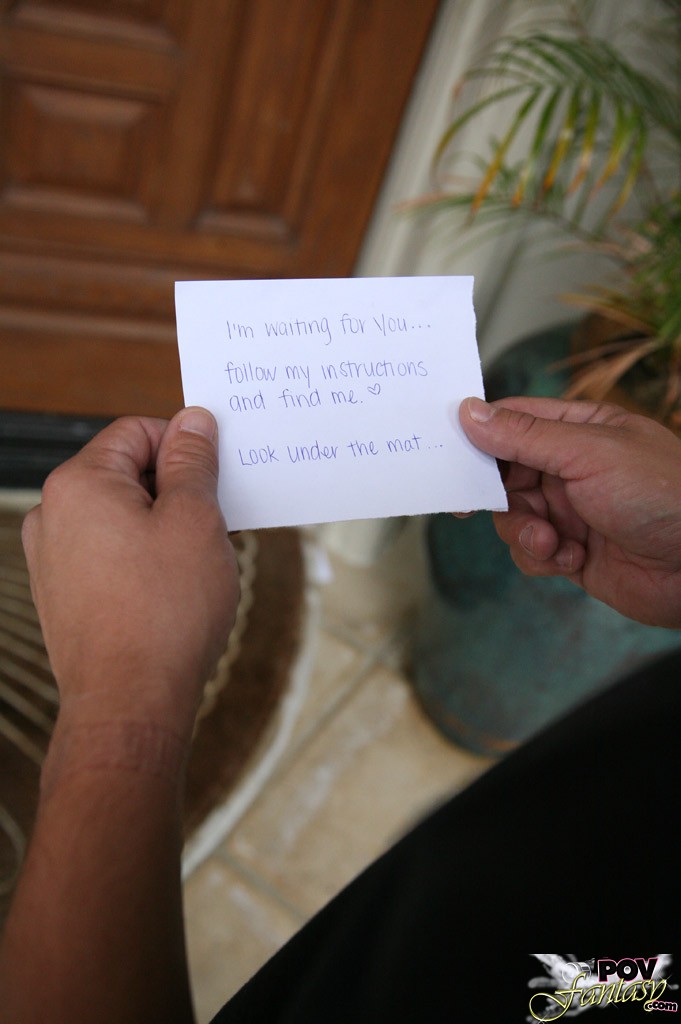 I'm waiting for you...
follow my instructions
and find me. ♡
Look under the mat...
POV
Fantasy
.com